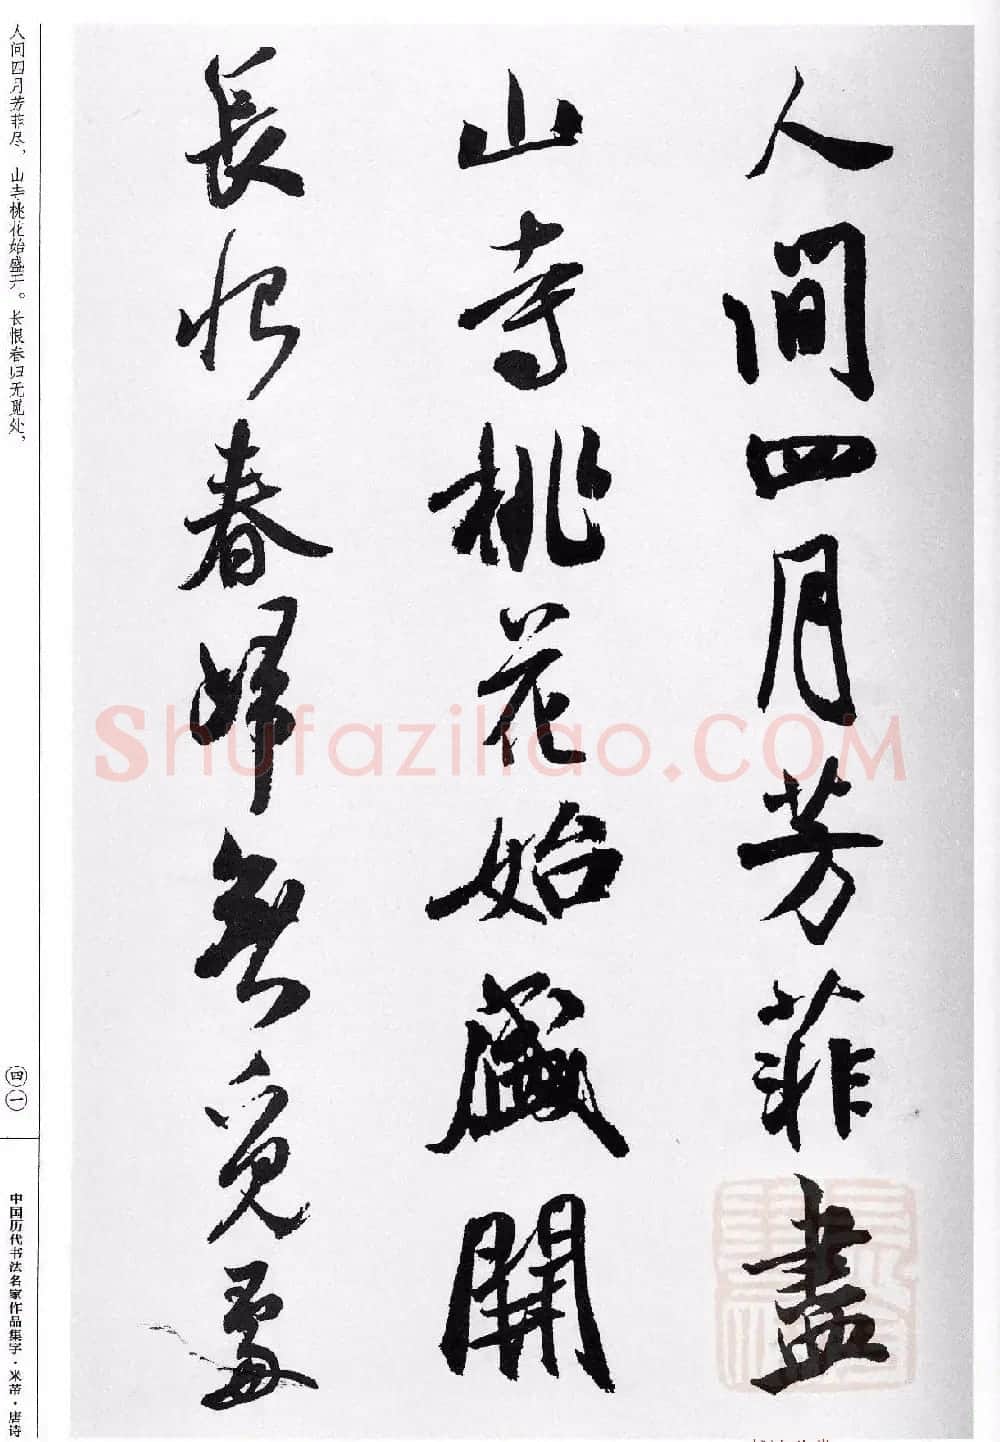 人間四月芳菲盡
山寺桃花始盛開
長恨春歸無覓處
人间四月芳菲尽，山寺桃花始盛开。长恨春归无觅处，
四一
中国历代书法名家作品集字·米芾·唐诗
Shufaziliao.COM